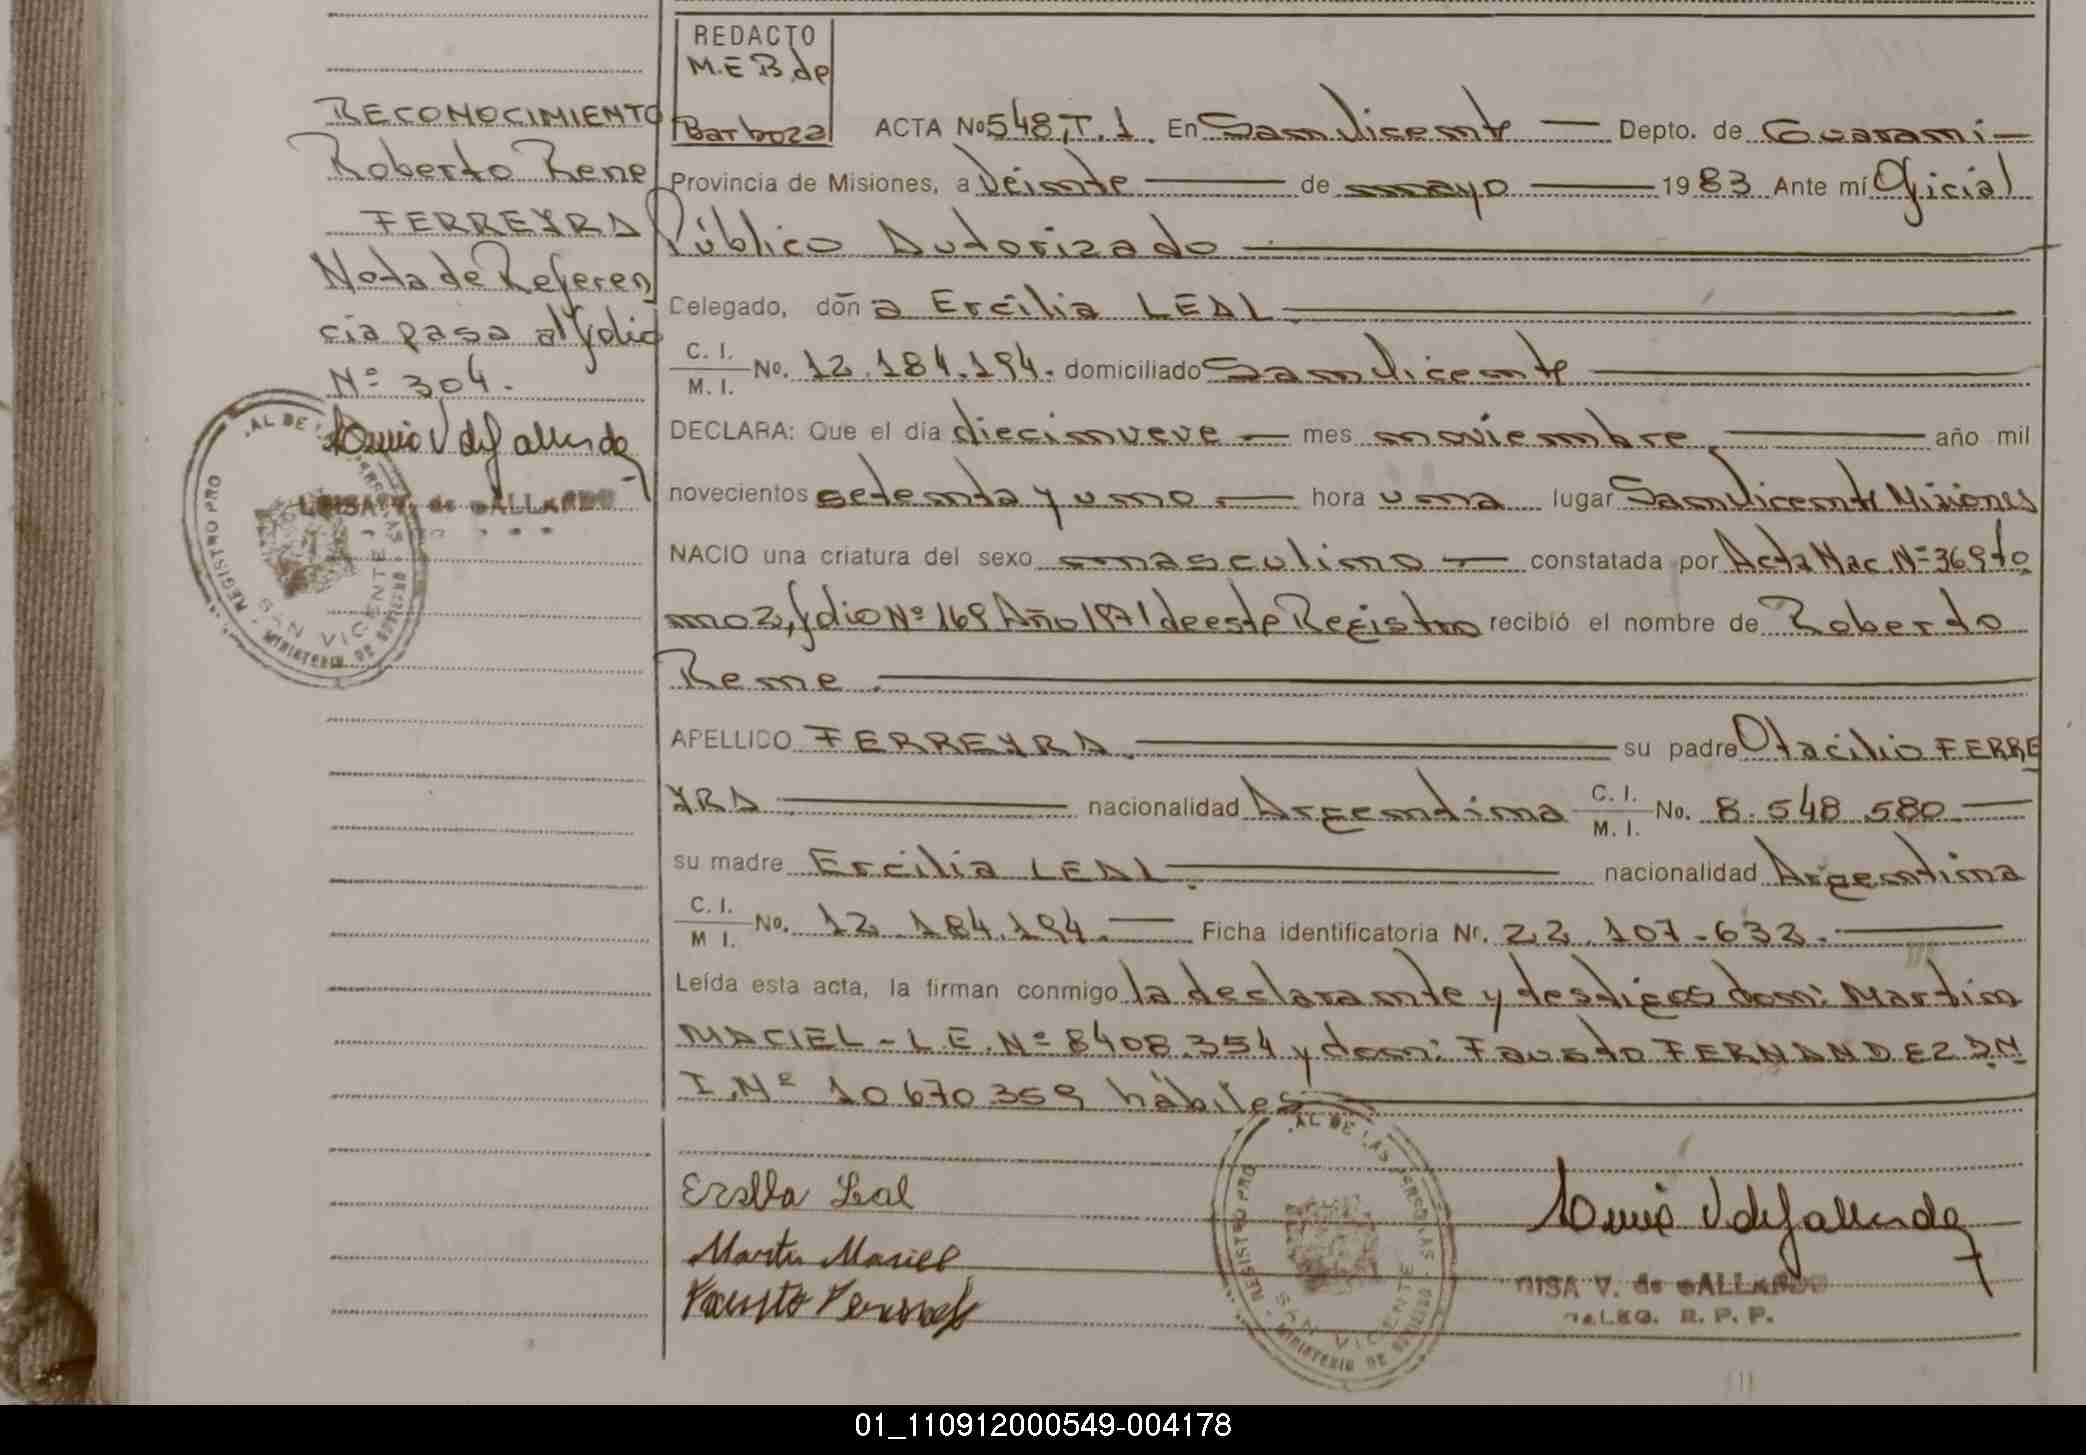 REDACTO
M.E B. de
Barboza
ACTA No 548, T. 1. En San Vicente — Depto. de Guarani —
Provincia de Misiones, a Veinte — de mayo — 1983 Ante mí Oficial
Público Autorizado
Delegado, doña Ercilia LEAL
C. I. / M. I. No. 12.184.194. domiciliado San Vicente
DECLARA: Que el día diecinueve — mes noviembre — año mil
novecientos setenta y uno — hora una lugar San Vicente Misiones
NACIO una criatura del sexo masculino — constatada por Acta Nac. Nº 369 to
mo 2, folio Nº 169 Año 1971 de este Registro recibió el nombre de Roberto
Rene
APELLIDO FERREYRA. — su padre Otacilio FERRE
YRA — nacionalidad Argentina C. I. / M. I. No. 8.548.580 —
su madre Ercilia LEAL — nacionalidad Argentina
C. I. / M I. No. 12.184.194. — Ficha identificatoria Nº. 22.107.632. —
Leída esta acta, la firman conmigo la declarante y testigos don: Martin
MACIEL - L.E. Nº 8408.354 y don: Fausto FERNANDEZ D.N.
I. Nº 10670359 hábiles
Leal
Martin Maciel
Fausto
V. de GALLARDO
R. P. P.
REGISTRO PRO AL DE LAS PERSONAS
SAN VICENTE
MINISTERIO DE GOBIERNO
RECONOCIMIENTO
Roberto Rene
FERREYRA
Nota de Referen
cia pasa al folio
Nº 304.
V. de GALLARDO
REGISTRO PRO AL DE PERSONAS
SAN VICENTE
MINISTERIO DE GOBIERNO
01_110912000549-004178